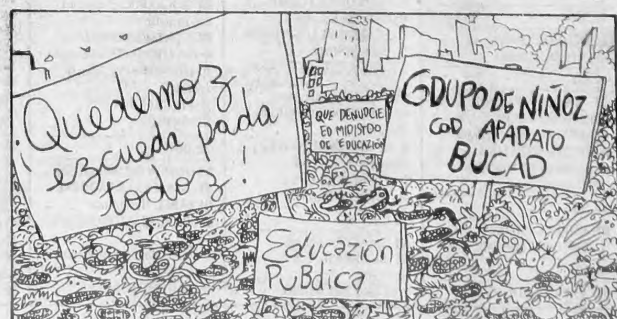 ¡Quedemoz
ezcueda pada
todoz!
QUE DENUDCIE
ED MIDIZTDO
DE EDUCAZIÓN
GDUPO DE NIÑOZ
COD APADATO
BUCAD
Educazión
PuBdica